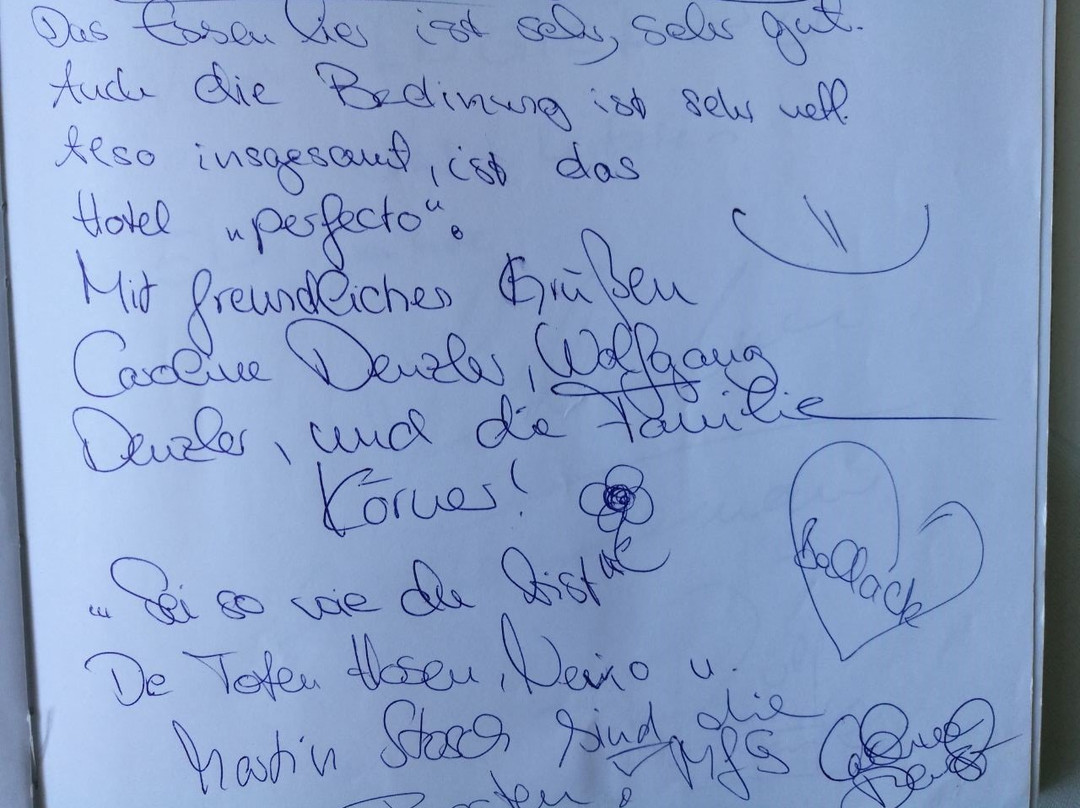 Das Essen hier ist sehr, sehr gut.
Auch die Bedinung ist sehr nett.
Also insgesamt, ist das
Hotel „perfecto“.
Mit freundlichen Grüßen
Caroline Denzler, Wolfgang
Denzler, und die Familie
Körner!
„Sei so wie du bist“
Ballack
De Toten Hosen, Neino u.
Martin Stosch sind die
MfG
Besten!